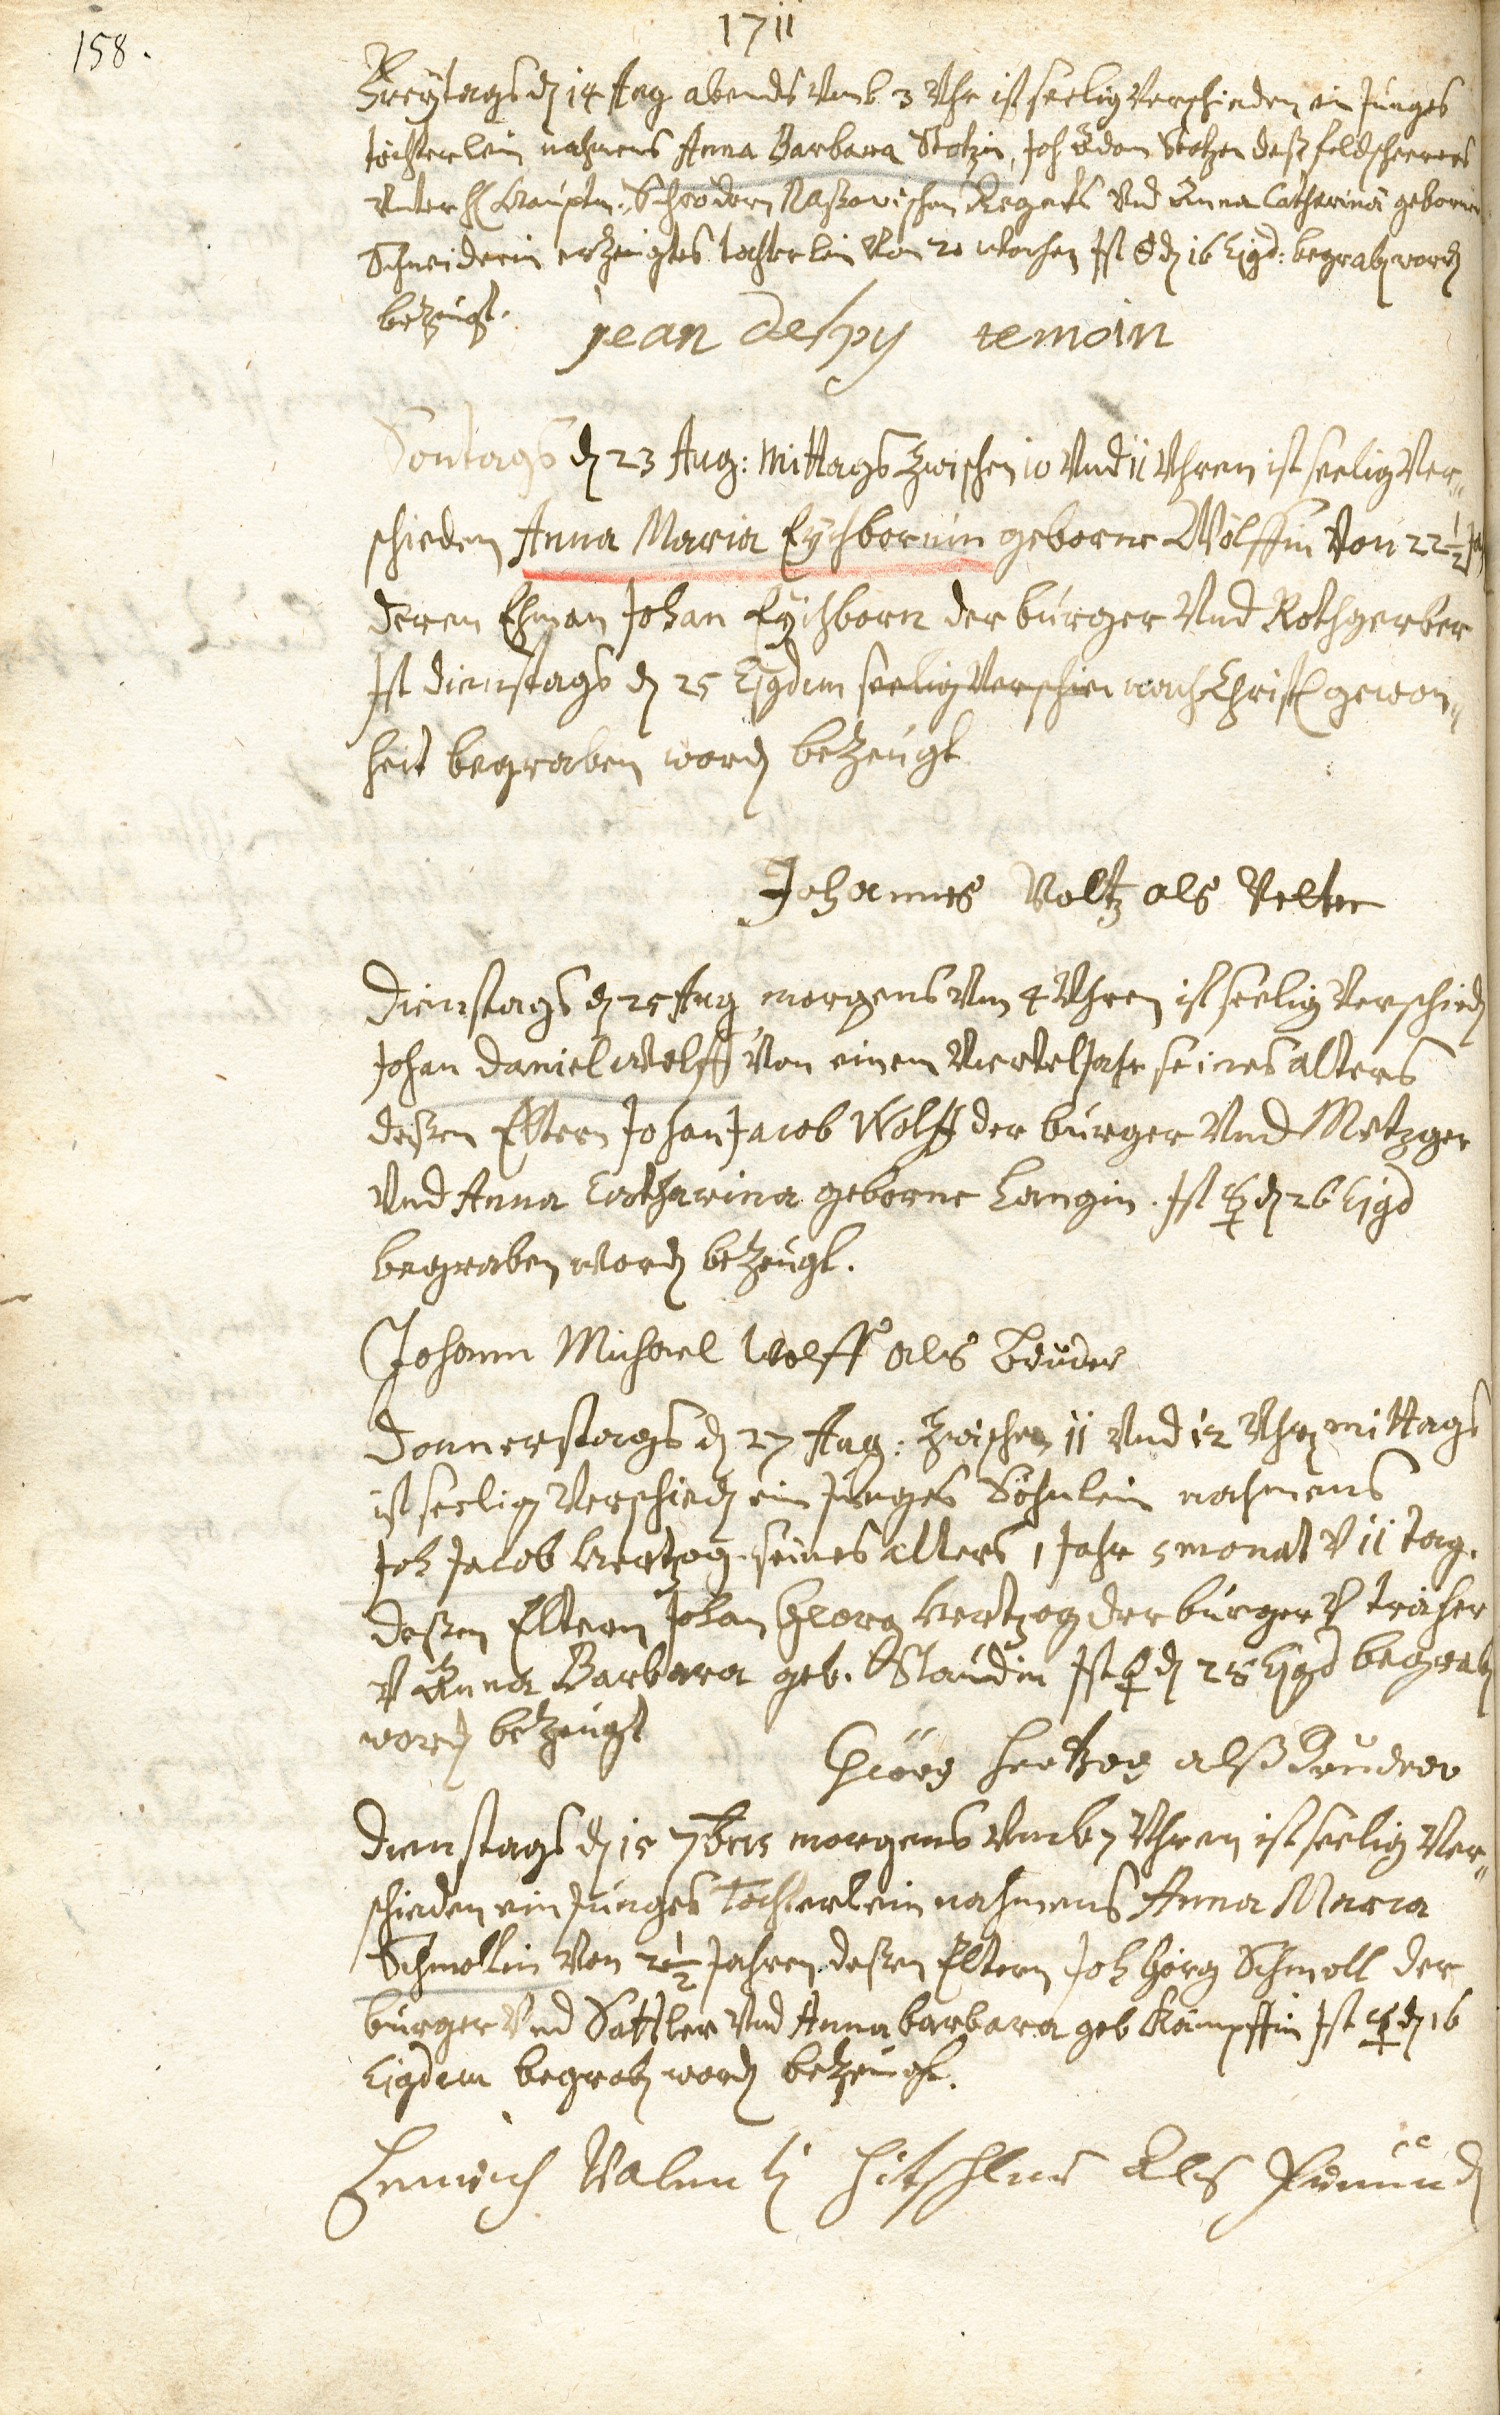 1711
158.
Freytags dn 14 Aug abends Umb 3 Uhr ist seelig Verschieden ein Junges
töchterlein nahmens Anna Barbara Stotzin, Joh Adam Stotzen deß feldscherers
Unter H Hauptm: Nassauischen Regets Und Anna Catharina gebornen
Schneiderin erzeugtes tochterlein Von 20 wochen Ist dn 16 Ejgd: begrabn wordn
bezeugt.
jean despy temoin
Sontags dn 23 Aug: Mittags Zwischen 10 Und 11 Uhren ist seelig Ver„
schieden Anna Maria Eychbornin geborne Wolffin Von 22 1/2
deren Ehman Johan Eychborn der burger Und Rothgerber
Ist dienstags dn 25 Ejgdem seelig Verschie nach Christl gewon„
heit begraben wordn bezeugt
Johannes Voltz als Vetter
Dienstags dn 25 Aug morgens Um 4 Uhren ist seelig Verschiedn
Johan Daniel Wolff Von einem Viertel Jahr seines alters
deßen Eltern Johan Jacob Wolff der burger Und Metzger
Und Anna Catharina geborne Langin. Ist ☿ dn 26 Ejgd
begraben wordn bezeugt.
Johann Michael Wolff als Bruder
Donnerstags dn 27 Aug: Zwischen 11 Und 12 Uhrn mittags
ist seelig Verschiedn ein Junges Söhnlein nahmens
Joh Jacob Hertzog seines alters 1 Jahr 5 monat V 11 tag.
deßen Eltern Johan Georg Hertzog der burger V träher
V Anna Barbara geb. Staudin Ist ♀ dn 28 Ejgd begrabn
wordn bezeugt
Geörg Hertzog alß Bruder
Dienstags dn 15 7bris morgens Umb 7 Uhren ist seelig Ver„
schieden ein Junges Tochterlein nahmens Anna Maria
Schmollin Von 2 1/2 Jahren deßen Eltern Joh Görg Schmoll der
burger Und Sattler Und Anna barbara geb Kämpffin Ist ☿ dn 16
Ejgdem begrabn wordn bezeugt.
Henrich Valentin Als Freund